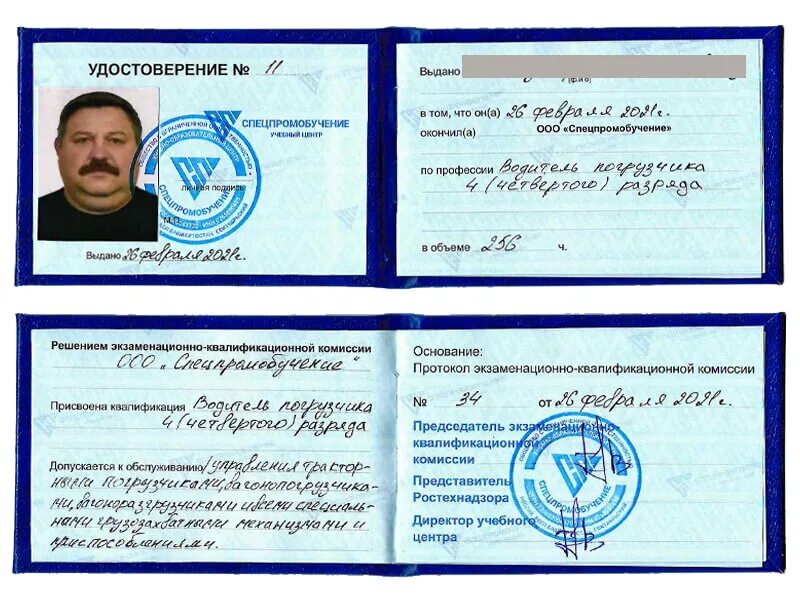 УДОСТОВЕРЕНИЕ № 11
СПЕЦПРОМОБУЧЕНИЕ
УЧЕБНЫЙ ЦЕНТР
личная подпись
М.П.
СПЕЦПРОМОБУЧЕНИЕ
Выдано 26 февраля 2021г.
Выдано
(ф.и.о)
в том, что он(а) 26 февраля 2021г.
окончил(а) ООО «Спецпромобучение»
по профессии Водитель погрузчика
4 (четвертого) разряда
в объеме 256 ч.
Решением экзаменационно-квалификационной комиссии
ООО „Спецпромобучение“
Присвоена квалификация Водитель погрузчика
4 (четвертого) разряда
Допускается к обслуживанию/управления трактор-
ными погрузчиками, вагонопогрузчика-
ми, вагоноразгрузчиками и всеми специаль-
ными грузозахватными механизмами и
приспособлениями.
Основание:
Протокол экзаменационно-квалификационной комиссии
№ 34 от 26 февраля 2021г.
Председатель экзаменационно-
квалификационной
комиссии
Представитель
Ростехнадзора
Директор учебного
центра
СПЕЦПРОМОБУЧЕНИЕ